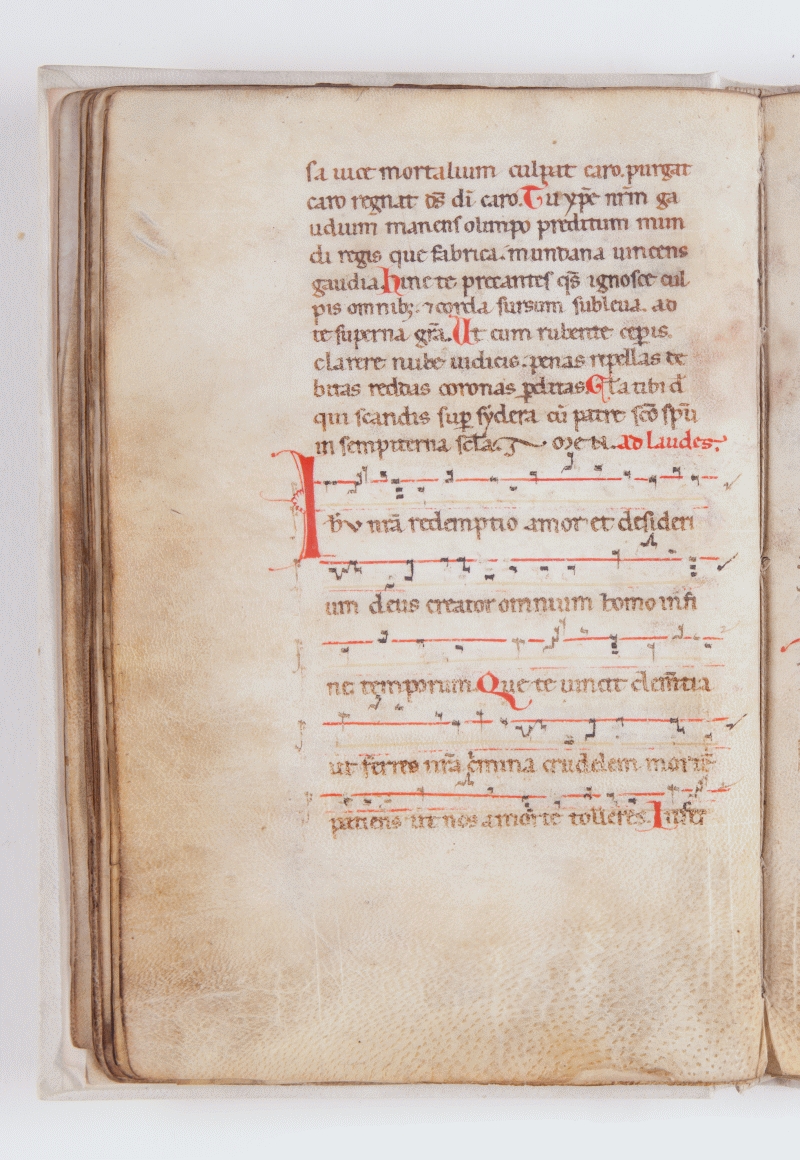 sa uice mortalium culpat caro. purgat
caro regnat ds̄ dī caro. Tu xp̄e nrm̄ ga
udium manens olimpo preditum mun
di regis que fabrica. mundana uincens
gaudia. hinc te precantes qs̄ ignosce cul
pis omnibꝫ. ⁊ corda sursum subleua. ad
te superna grā. Ut cum rubente ceperis
clarere nube iudicis. penas repellas de
bitas reddas coronas ꝑditas. Gl̄a tibi d̄
qui scandis suꝑ sydera cū patre scō spū
in sempiterna scl̄a. ad laudes.
Ihu nrā redemptio amor et desideri
um deus creator omnium homo in fi
ne temporum. Que te uincit clem̄tia
ut ferres nrā crimina crudelem mortē
patiens ut nos a morte tolleres. Inferi